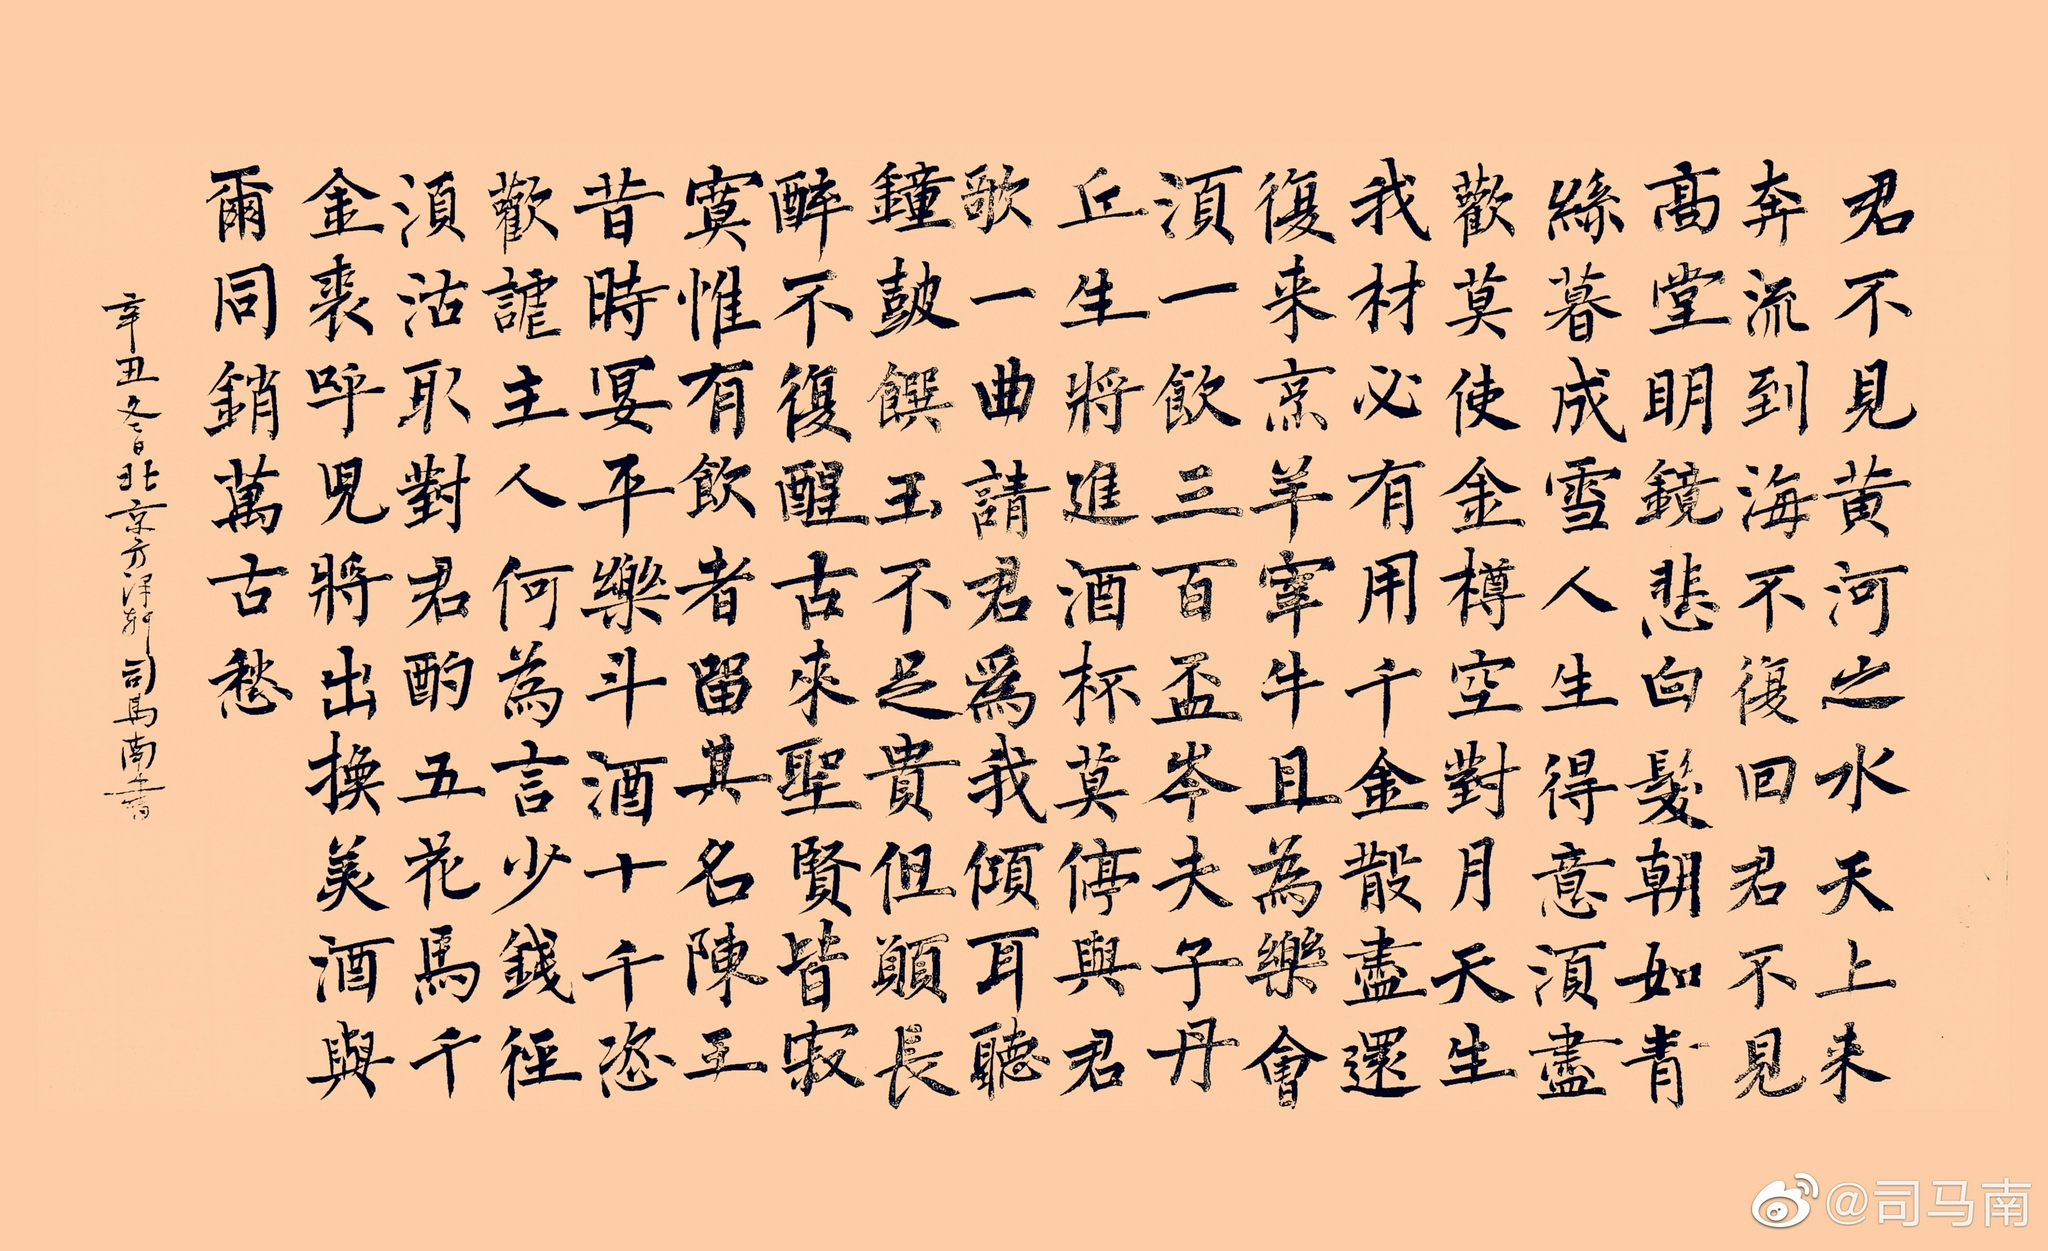 君不見黃河之水天上来
奔流到海不復回君不見
髙堂明鏡悲白髮朝如青
絲暮成雪人生得意須盡
歡莫使金樽空對月天生
我材必有用千金散盡還
復来烹羊宰牛且為樂會
須一飲三百盃岑夫子丹
丘生將進酒杯莫停與君
歌一曲請君爲我傾耳聽
鐘鼓饌玉不足貴但願長
醉不復醒古來聖賢皆寂
寞惟有飲者留其名陳王
昔時宴平樂斗酒十千恣
歡謔主人何為言少錢徑
須沽取對君酌五花馬千
金裘呼児將出換美酒與
爾同銷萬古愁
辛丑冬日北京方泽轩司馬南書
@司马南